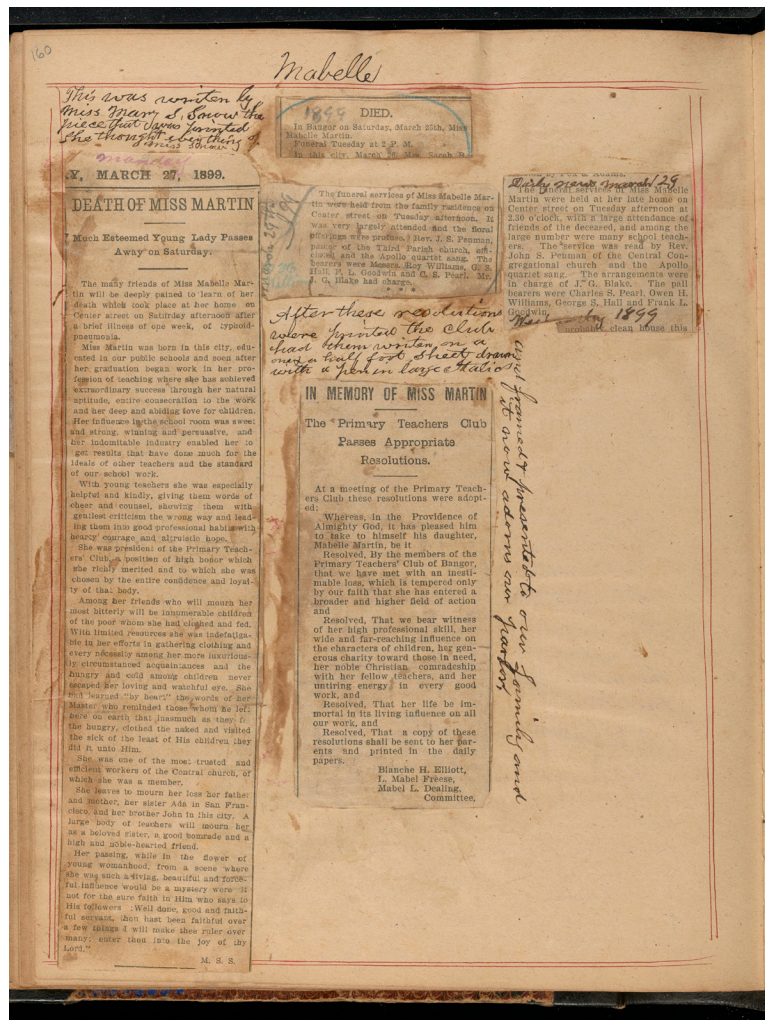 160
Mabelle
This was written by
Miss Mary S. Snow the
piece that was printed
She thought everything of
Miss Snow
Monday
Y, MARCH 27, 1899.
DEATH OF MISS MARTIN
Much Esteemed Young Lady Passes
Away on Saturday.
The many friends of Miss Mabelle Mar-
tin will be deeply pained to learn of her
death which took place at her home on
Center street on Saturday afternoon after
a brief illness of one week, of typhoid-
pneumonia.
Miss Martin was born in this city, edu-
cated in our public schools and soon after
her graduation began work in her pro-
fession of teaching where she has achieved
extraordinary success through her natural
aptitude, entire consecration to the work
and her deep and abiding love for children.
Her influence in the school room was sweet
and strong, winning and persuasive, and
her indomitable industry enabled her to
get results that have done much for the
ideals of other teachers and the standard
of our school work.
With young teachers she was especially
helpful and kindly, giving them words of
cheer and counsel, showing them with
gentlest criticism the wrong way and lead-
ing them into good professional habits with
hearty courage and altruistic hope.
She was president of the Primary Teach-
ers' Club, a position of high honor which
she richly merited and to which she was
chosen by the entire confidence and loyal-
ty of that body.
Among her friends who will mourn her
most bitterly will be innumerable children
of the poor whom she had clothed and fed.
With limited resources she was indefatiga-
ble in her efforts in gathering clothing and
every necessity among her more luxurious-
ly circumstanced acquaintances and the
hungry and cold among children never
escaped her loving and watchful eye. She
had learned "by heart" the words of her
Master who reminded those whom he left
here on earth that inasmuch as they fe
the hungry, clothed the naked and visited
the sick of the least of His children they
did it unto Him.
She was one of the most trusted and
efficient workers of the Central church, of
which she was a member.
She leaves to mourn her loss her father
and mother, her sister Ada in San Fran-
cisco, and her brother John in this city. A
large body of teachers will mourn her
as a beloved sister, a good comrade and a
high and noble-hearted friend.
Her passing, while in the flower of
young womanhood, from a scene where
she was such a living, beautiful and force-
ful influence would be a mystery were it
not for the sure faith in Him who says to
His followers :Well done, good and faith-
ful servant, thou hast been faithful over
a few things I will make thee ruler over
many; enter thou into the joy of thy
Lord."
M. S. S.
1899
DIED.
In Bangor on Saturday, March 25th, Miss
Mabelle Martin.
Funeral Tuesday at 2 P. M.
In this city, March 26, Mrs. Sarah B.
March 29th
1899
The funeral services of Miss Mabelle Mar-
tin were held from the family residence on
Center street on Tuesday afternoon. It
was very largely attended and the floral
offerings were profuse. Rev. J. S. Penman,
pastor of the Third Parish church, offi-
ciated and the Apollo quartet sang. The
bearers were Messrs. Roy Williams, G. S.
Hall, F. L. Goodwin and C. S. Pearl. Mr.
J. G. Blake had charge.
Daily news March 29
The funeral services of Miss Mabelle
Martin were held at her late home on
Center street on Tuesday afternoon at
2.30 o'clock, with a large attendance of
friends of the deceased, and among the
large number were many school teach-
ers. The service was read by Rev.
John S. Penman of the Central Con-
gregational church and the Apollo
quartet sang. The arrangements were
in charge of J. G. Blake. The pall
bearers were Charles S. Pearl, Owen H.
Williams, George S. Hall and Frank L.
Goodwin.
1899
probably clean house this
After these resolutions
were printed the Club
had them written on a
a half foot sheet drawn
with a pen in large
and framed & presented to our family and
it now adorns our parlor
IN MEMORY OF MISS MARTIN
The Primary Teachers Club
Passes Appropriate
Resolutions.
At a meeting of the Primary Teach-
ers Club these resolutions were adopt-
ed:
Whereas, in the Providence of
Almighty God, it has pleased him
to take to himself his daughter,
Mabelle Martin, be it
Resolved, By the members of the
Primary Teachers' Club of Bangor,
that we have met with an inesti-
mable loss, which is tempered only
by our faith that she has entered a
broader and higher field of action
and
Resolved, That we bear witness
of her high professional skill, her
wide and far-reaching influence on
the characters of children, her gen-
erous charity toward those in need,
her noble Christian comradeship
with her fellow teachers, and her
untiring energy in every good
work, and
Resolved, That her life be im-
mortal in its living influence on all
our work, and
Resolved, That a copy of these
resolutions shall be sent to her par-
ents and printed in the daily
papers.
Blanche H. Elliott,
L. Mabel Freese,
Mabel L. Dealing,
Committee.